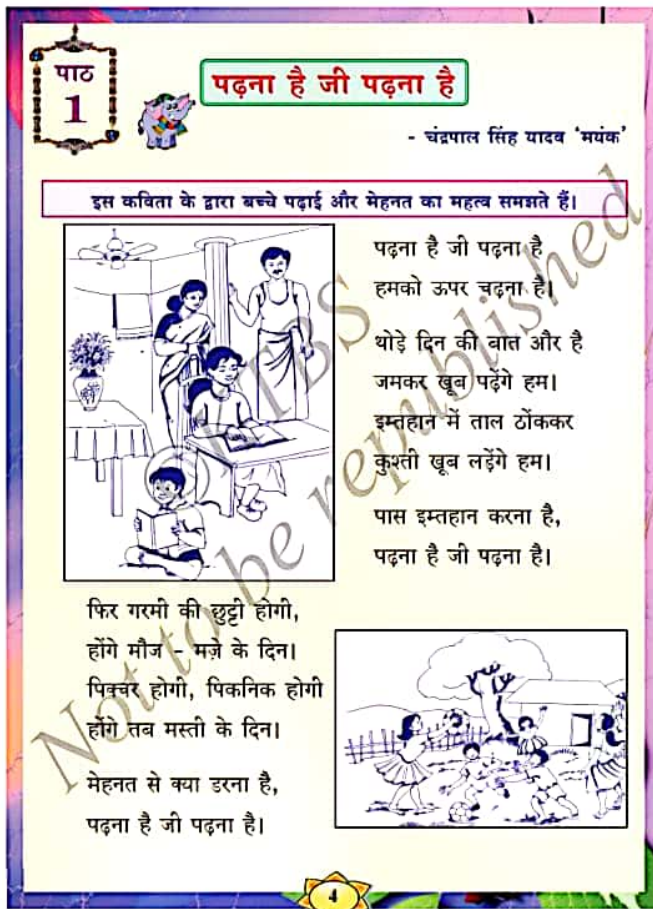 पाठ
1
पढ़ना है जी पढ़ना है
- चंद्रपाल सिंह यादव ‘मयंक’
इस कविता के द्वारा बच्चे पढ़ाई और मेहनत का महत्व समझते हैं।
पढ़ना है जी पढ़ना है
हमको ऊपर चढ़ना है।
थोड़े दिन की बात और है
जमकर खूब पढ़ेंगे हम।
इम्तहान में ताल ठोंककर
कुश्ती खूब लड़ेंगे हम।
पास इम्तहान करना है,
पढ़ना है जी पढ़ना है।
फिर गरमी की छुट्टी होगी,
होंगे मौज - मज़े के दिन।
पिक्चर होगी, पिकनिक होगी
होंगे तब मस्ती के दिन।
मेहनत से क्या डरना है,
पढ़ना है जी पढ़ना है।
©KTBS
Not to be republished
4